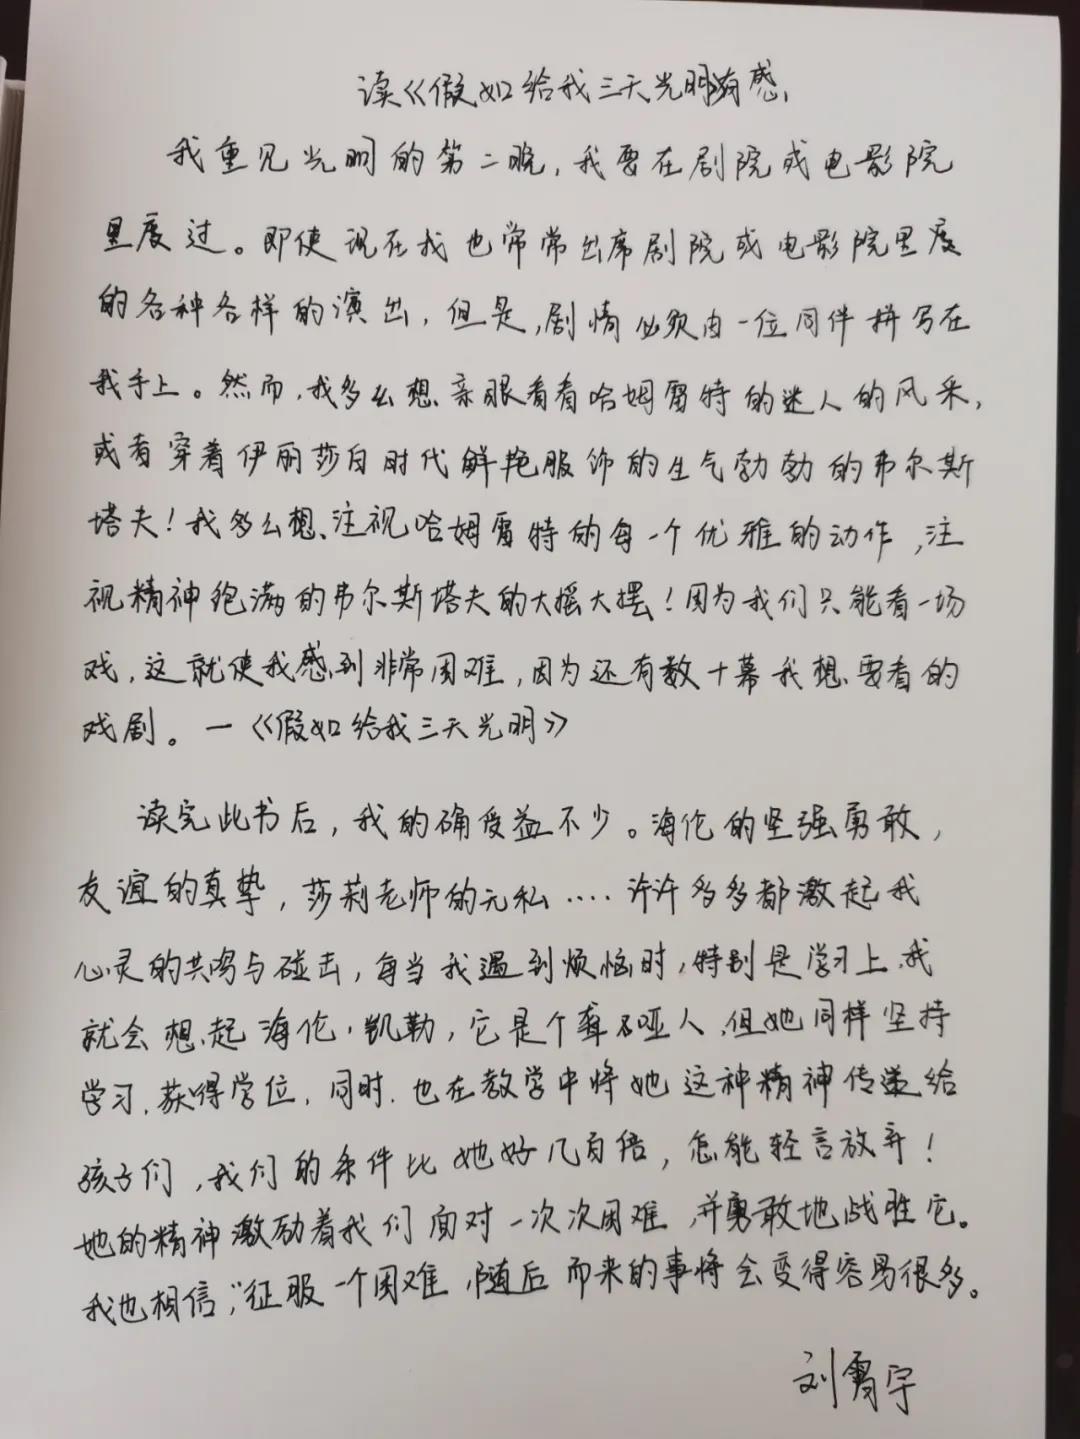 读《假如给我三天光明有感
我重见光明的第二晚，我要在剧院或电影院
里度过。即使现在我也常常出席剧院或电影院里度
的各种各样的演出，但是，剧情必须由一位同伴拼写在
我手上。然而，我多么想亲眼看看哈姆雷特的迷人的风采，
或者穿着伊丽莎白时代鲜艳服饰的生气勃勃的弗尔斯
塔夫！我多么想注视哈姆雷特的每一个优雅的动作，注
视精神饱满的弗尔斯塔夫的大摇大摆！因为我们只能看一场
戏，这就使我感到非常困难，因为还有数十幕我想要看的
戏剧。一《假如给我三天光明》
读完此书后，我的确受益不少。海伦的坚强勇敢，
友谊的真挚，莎莉老师的无私....许许多多都激起我
心灵的共鸣与碰击，每当我遇到烦恼时，特别是学习上，我
就会想起海伦·凯勒，它是个聋哑人，但她同样坚持
学习，获得学位，同时，也在教学中将她这种精神传递给
孩子们，我们的条件比她好几百倍，怎能轻言放弃！
她的精神激励着我们面对一次次困难，并勇敢地战胜它。
我也相信，“征服一个困难，随后而来的事将会变得容易很多。
刘宇